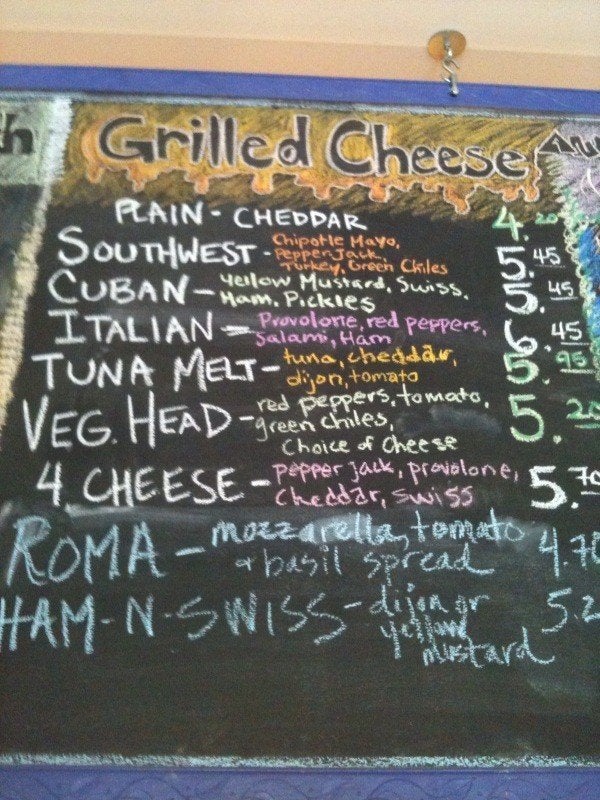 Grilled Cheese
PLAIN - CHEDDAR 4.20
SOUTHWEST - Chipotle Mayo, Pepper Jack, Turkey, Green Chiles 5.45
CUBAN - Yellow Mustard, Swiss, Ham, Pickles 5.45
ITALIAN = Provolone, red peppers, Salami, Ham 6.45
TUNA MELT - tuna, cheddar, dijon, tomato 5.95
VEG. HEAD - red peppers, tomato, green chiles, Choice of Cheese 5.25
4. CHEESE - pepper jack, provolone, Cheddar, Swiss 5.70
ROMA - mozzarella, tomato + basil spread 4.70
HAM-N-SWISS - dijon or yellow mustard 5.2